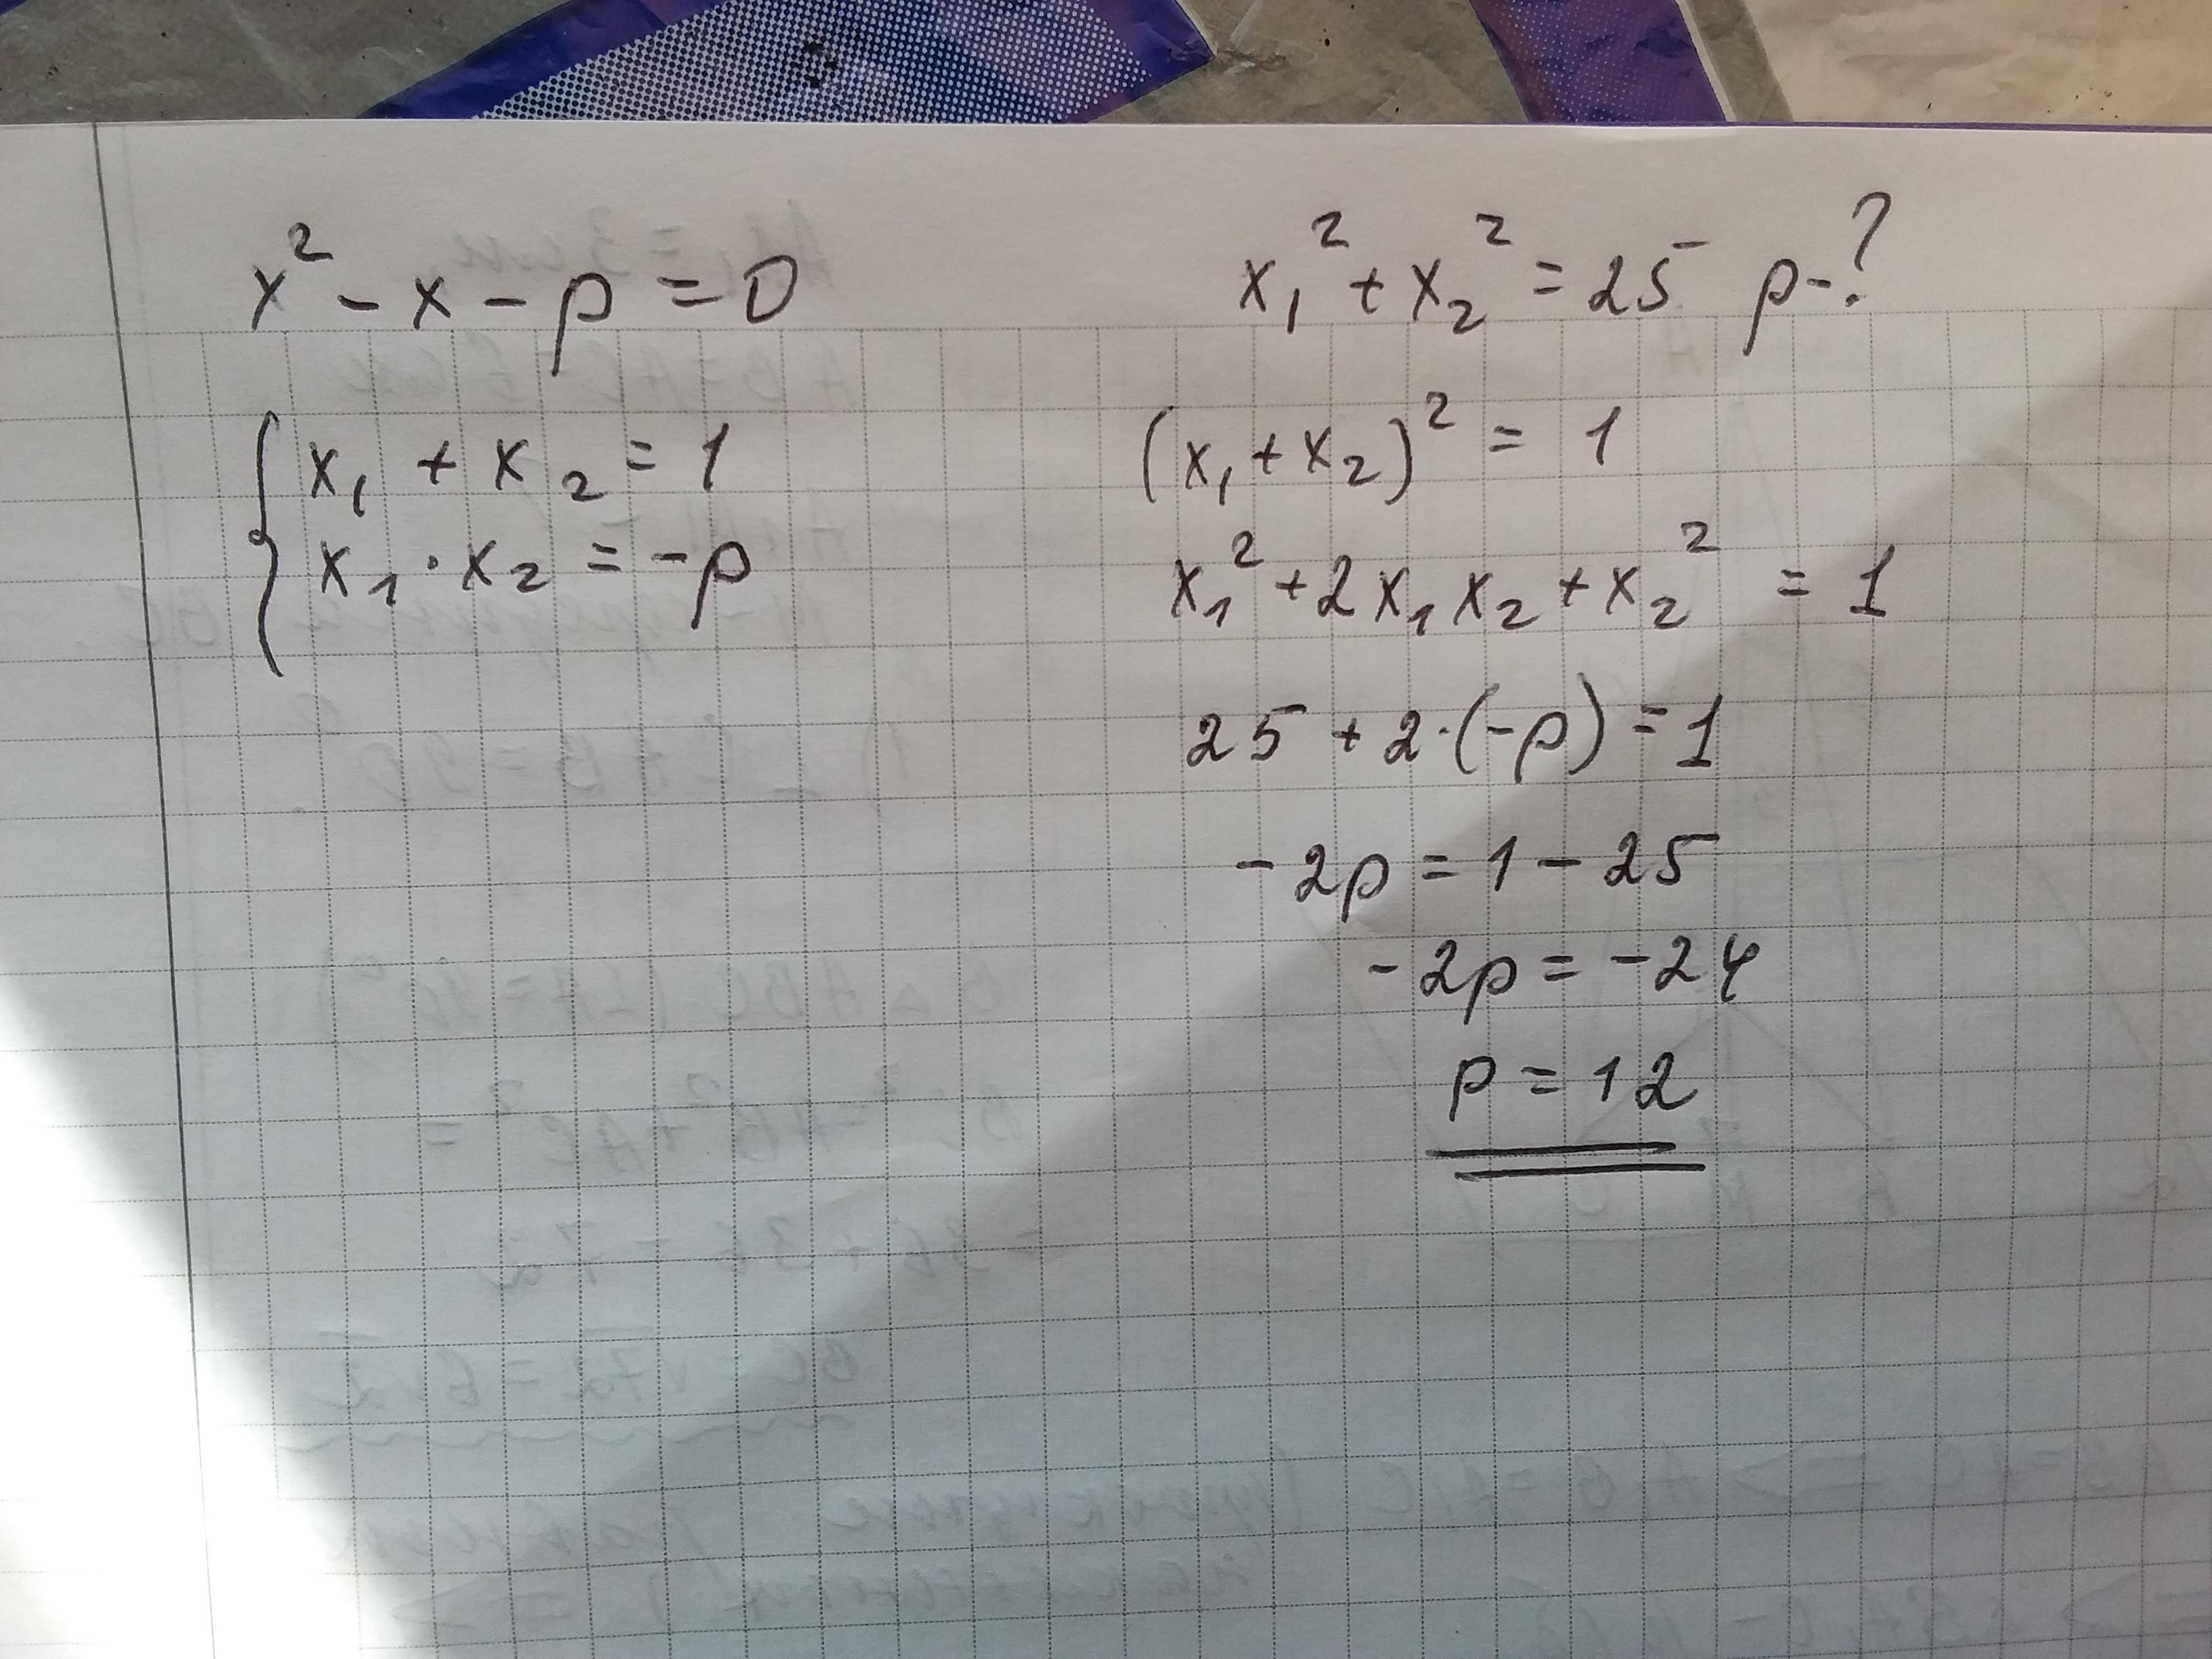 x² - x - p = 0
x₁² + x₂² = 25 p-?
{ x₁ + x₂ = 1
x₁ · x₂ = -p
(x₁ + x₂)² = 1
x₁² + 2x₁x₂ + x₂² = 1
25 + 2·(-p) = 1
-2p = 1 - 25
-2p = -24
p = 12